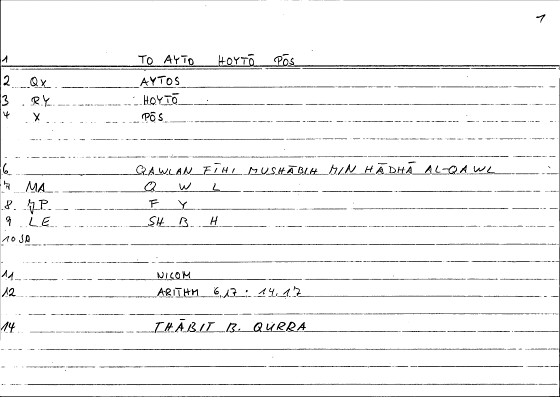 1
1 TO AYTO HOYTŌ PŌS
2 QX AYTOS
3 RY HOYTŌ
4 X PŌS
6 QAWLAN FĪHI MUSHĀBIH MIN HĀDHĀ AL-QAWL
7 MA Q W L
8 JP F Y
9 LE SH B H
10 SA
11 NICOM
12 ARITHM 6,17 · 14,17
14 THĀBIT B. QURRA